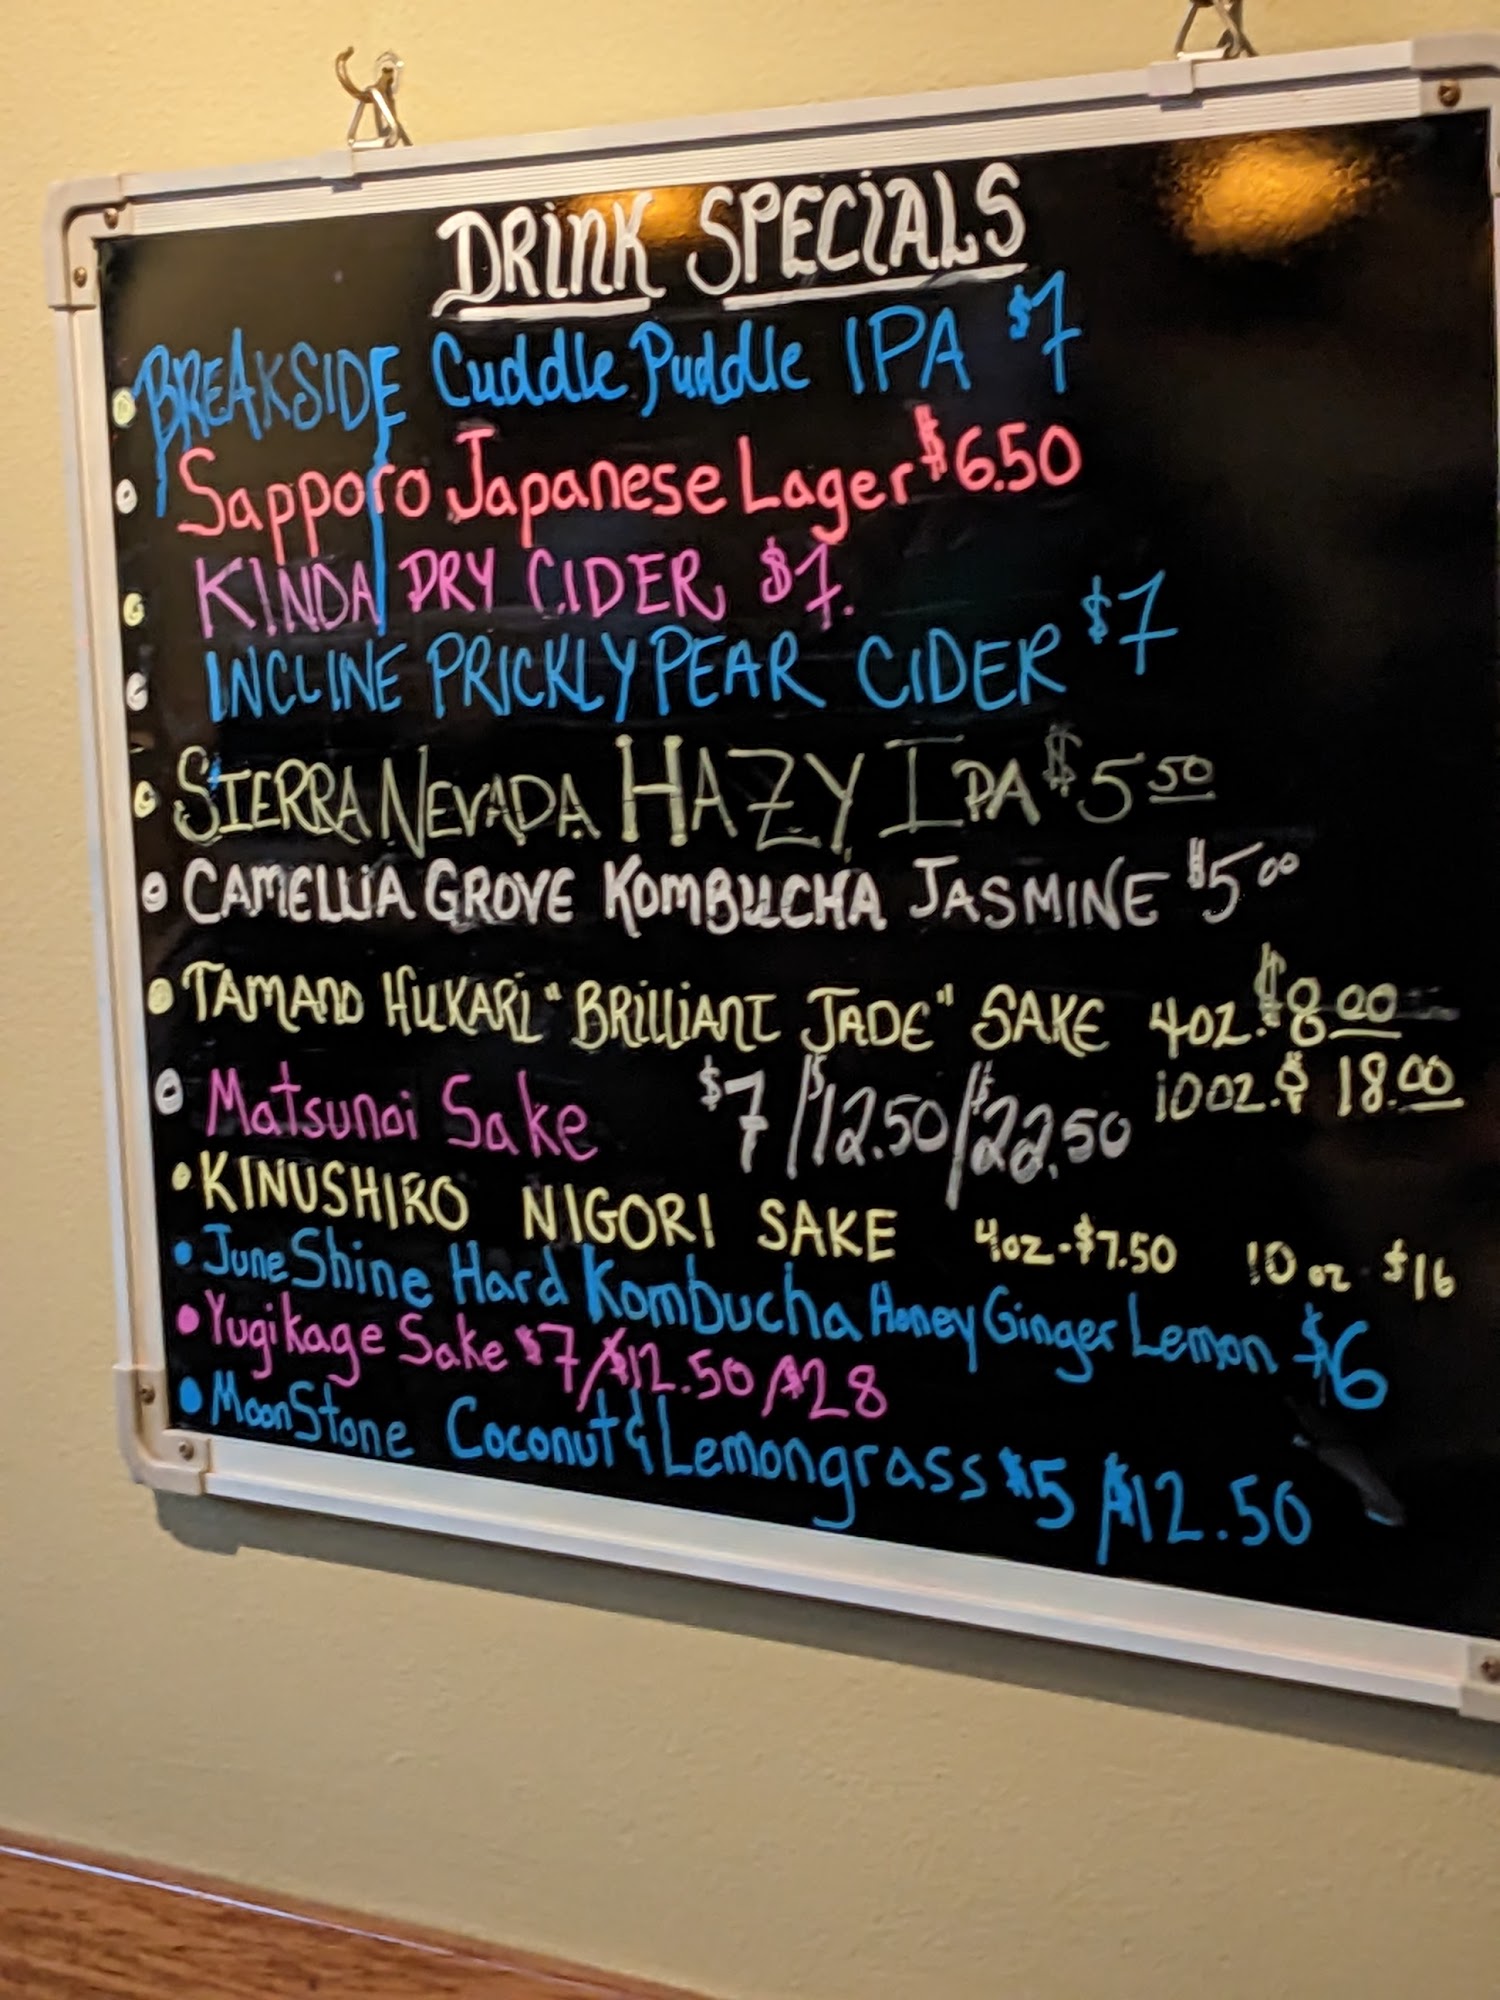 DRINK SPECIALS
BREAKSIDE Cuddle Puddle IPA $7
Sapporo Japanese Lager $6.50
KINDA DRY CIDER $7.
INCLINE PRICKLY PEAR CIDER $7
SIERRA NEVADA HAZY IPA $5 50
CAMELLIA GROVE KOMBUCHA JASMINE $5 00
TAMANO HIKARI "BRILLIANT JADE" SAKE 4oz. $8 00
10oz. $ 18.00
Matsunoi Sake $7/$12.50/$22.50
KINUSHIRO NIGORI SAKE 4oz - $7.50 10oz - $16
JuneShine Hard Kombucha Honey Ginger Lemon $6
Yugikage Sake $7/$12.50/$28
MoonStone Coconut & Lemongrass $5/$12.50